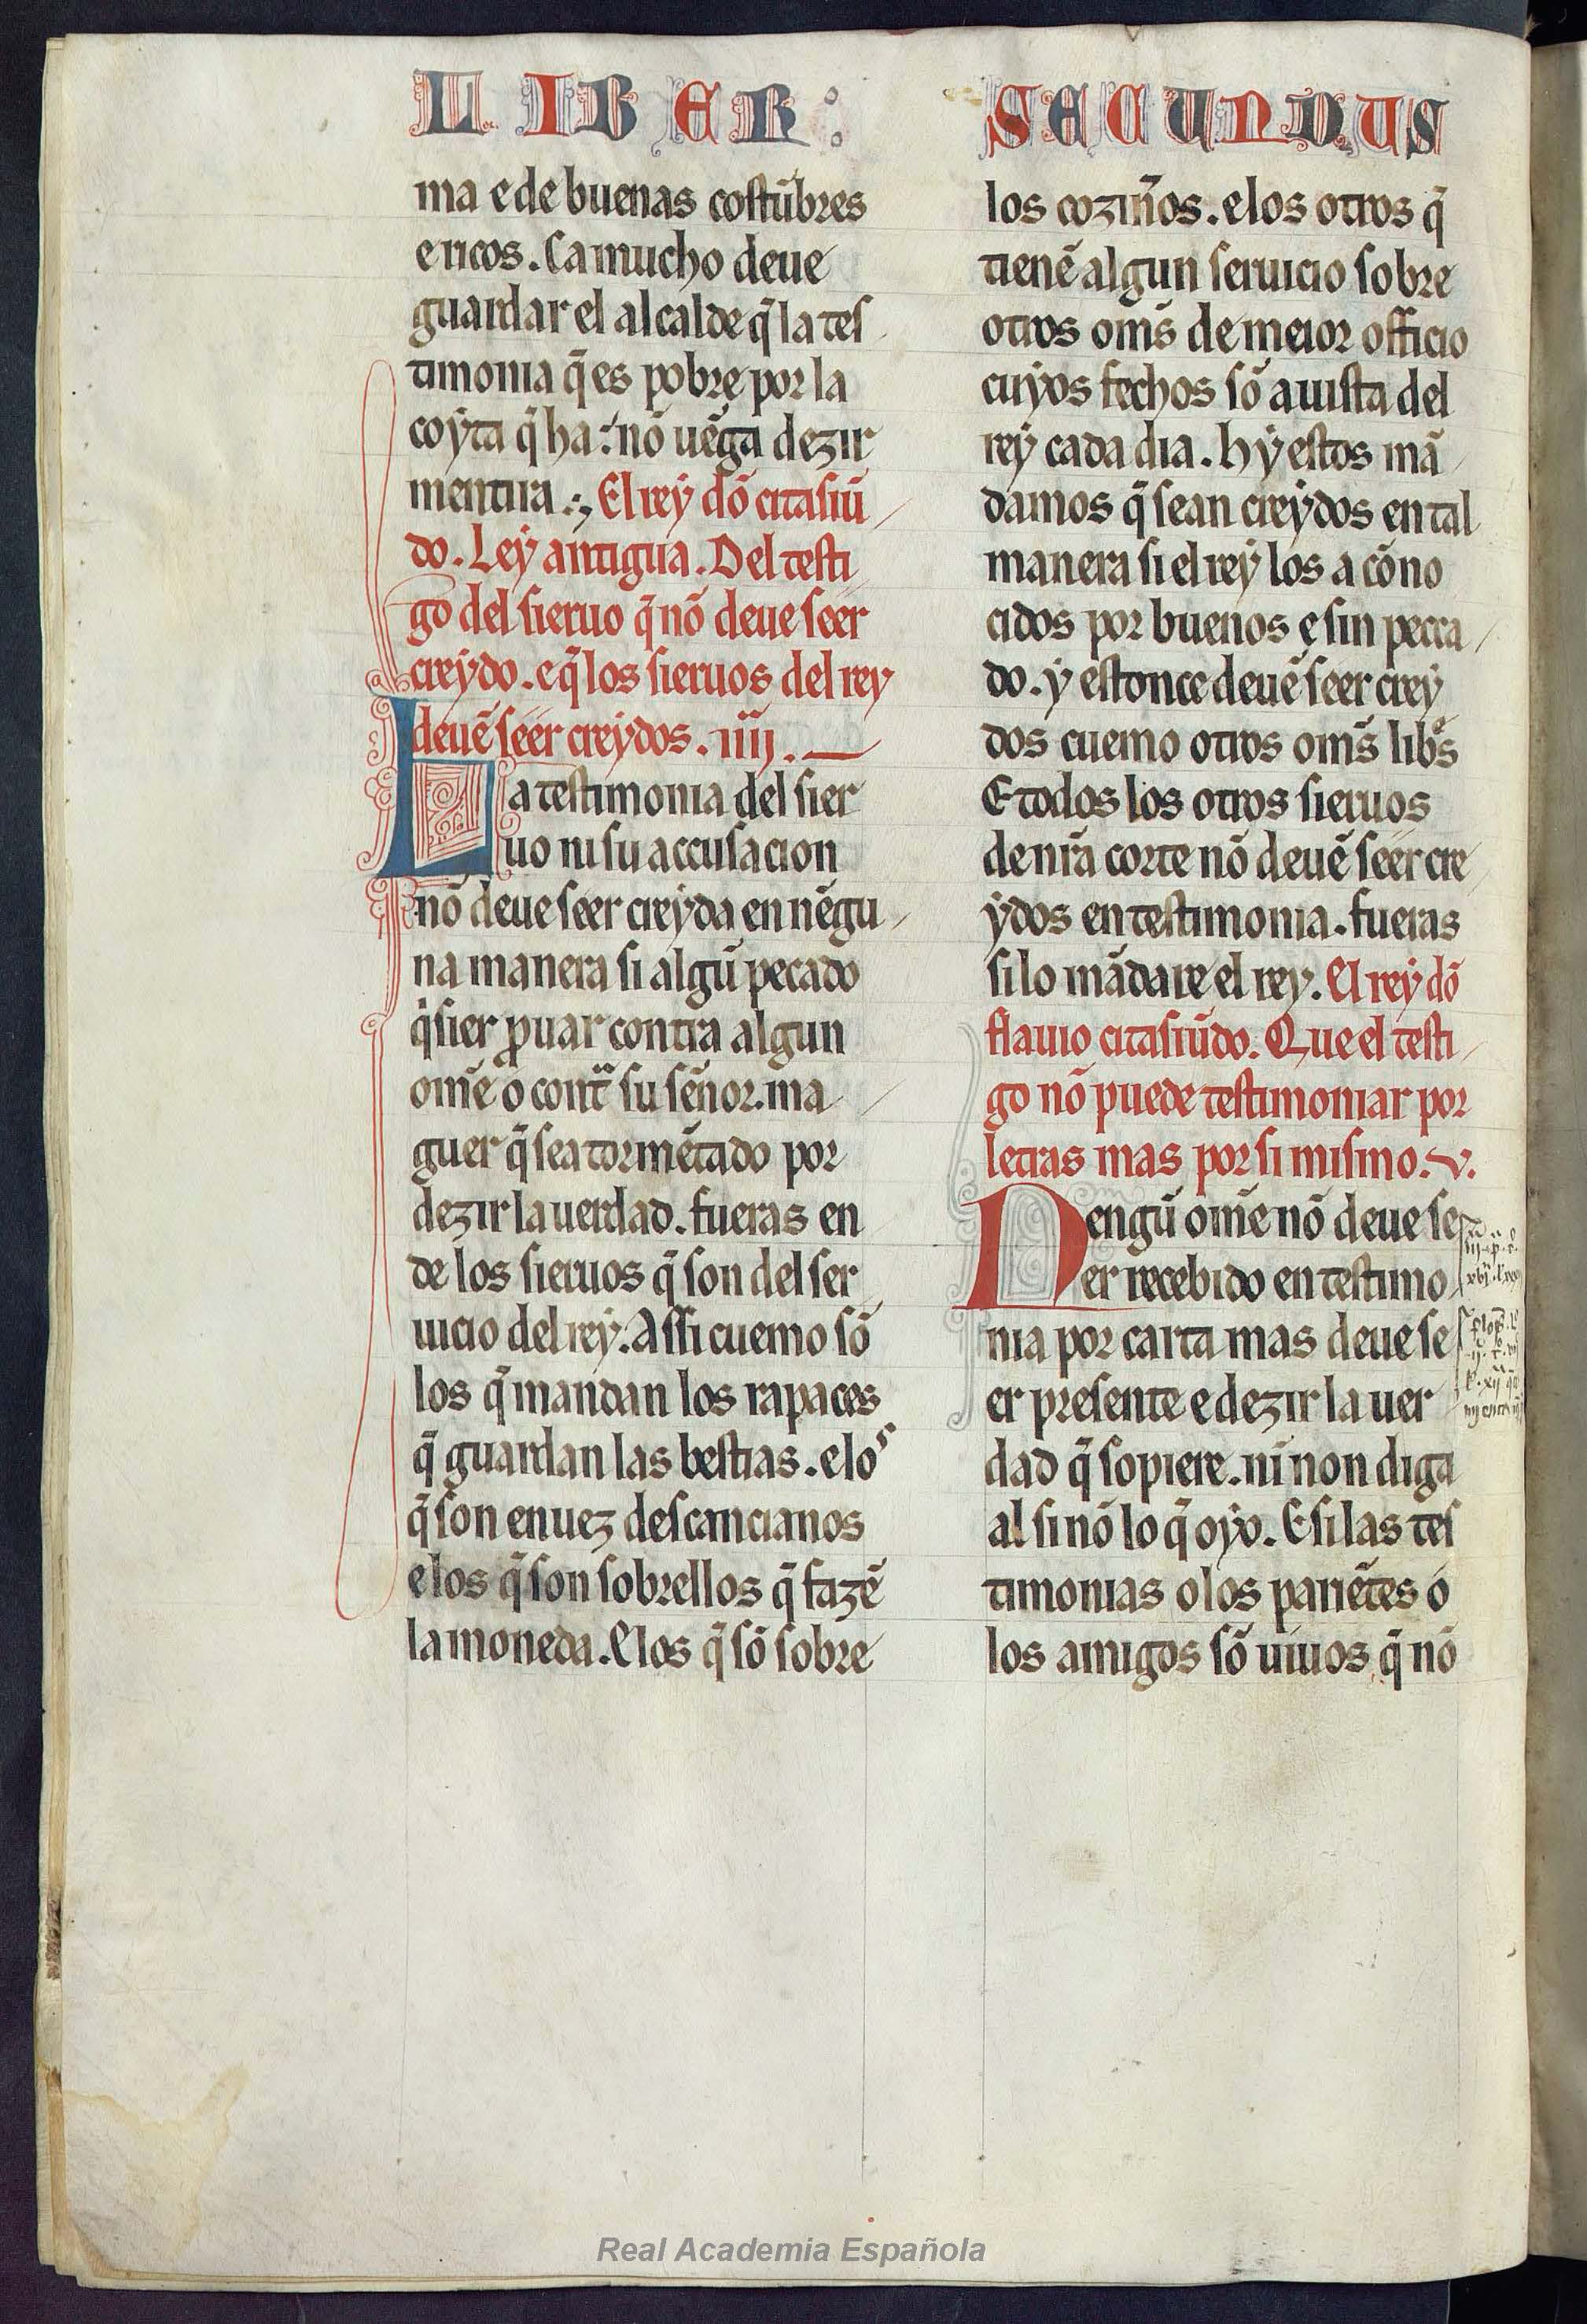 LIBER: SECUNDUS
ma e de buenas costũbres
e ricos. Ca mucho deue
guardar el alcalde q̃ la tes
timonia q̃ es pobre por la
coyta q̃ ha: nõ uẽga dezir
mentira. El rey dõ citasiũ
do. Ley antigua. Del testi
go del sieruo q̃ nõ deue seer
creydo. e q̃ los sieruos del rey
deuẽ seer creydos. iiij.
La testimonia del sier
uo ni su accusacion
nõ deue seer creyda en nẽgu
na manera si algũ pecado
q̃sier ꝓuar contra algun
om̃e o contͣ su sẽnor. ma
guer q̃ sea tormẽtado por
dezir la uerdad. fueras en
de los sieruos q̃ son del ser
uicio del rey. Assi cuemo sõ
los q̃ mandan los rapaces
q̃ guardan las bestias. e los
q̃ son en uez descancianos
e los q̃ son sobrellos q̃ fazẽ
la moneda. E los q̃ sõ sobre
los cozin̄os. e los otros q̃
tienẽ algun seruicio sobre
otros om̃s de meior officio
cuyos fechos sõ a uista del
rey cada dia. hy estos mã
damos q̃ sean creydos en tal
manera si el rey los a cõno
cidos por buenos e sin pecca
do. y estonce deuẽ seer crey
dos cuemo otros om̃s libͤs
E todos los otros sieruos
de nr̃a corte nõ deuẽ seer cre
ydos en testimonia. fueras
si lo mãdare el rey. El rey dõ
flauio citasiũdo. Que el testi
go nõ puede testimoniar por
letras mas por si mismo. v.
Nengũ om̃e nõ deue se
er recebido en testimo
nia por carta mas deue se
er presente e dezir la uer
dad q̃ sopiere. ni non diga
al si nõ lo q̃ oyo. E si las tes
timonias o los pariẽtes o
los amigos sõ uiuos q̃ nõ
Real Academia Española